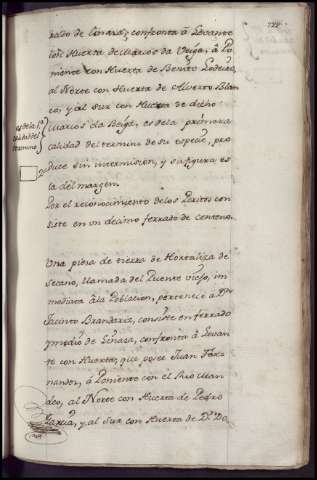 rrado de Linaza; confronta â Levante
con Huerta de Marcos da Veiga, â Po
niente con Huerta de Benito Lodeiro,
al Norte con Huerta de Alverto Blan
co, y al Sur con Huerta de dicho
Marcos da Beiga, es dela primera
calidad del termino de su especie, pro
duce sin intermision, y su figura es
la del margen.
Por el reconocimiento delos Peritos con
siste en un decimo ferrado de centeno.
es dela 1ª
calidad del
termino
Una pieza de tierra de Hortaliza de
Secano, llamada del Puente viejo, in
mediata âla Poblacion, pertenece â Dn
Jacinto Brandariz, consiste en ferrado
y medio de Linaza, confronta â Levan
te con Huerta, que posee Juan Fer
nandez, â Poniente con el Rio Man
deo, al Norte con Huerta de Pedro
Garcia, y al Sur con Huerta de Dn Do